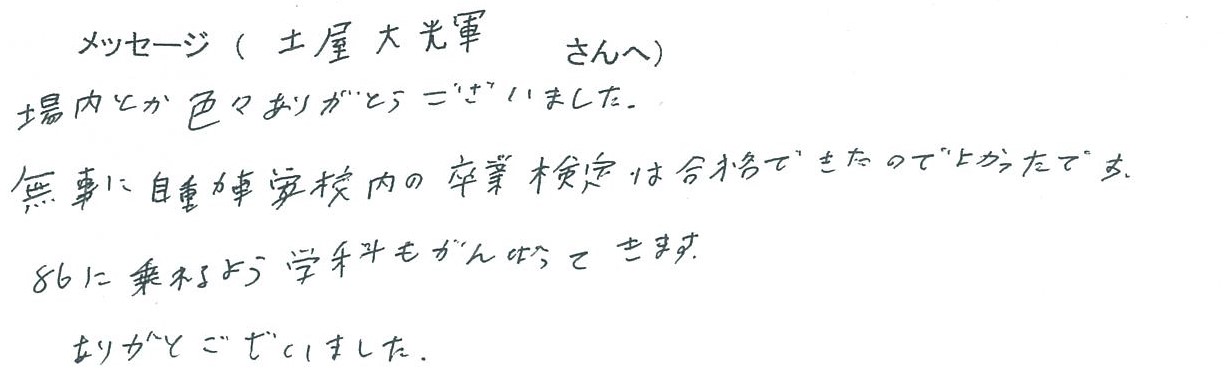 メッセージ( 土屋大光軍 さんへ)
場内とか色々ありがとうございました。
無事に自動車学校内の卒業検定は合格できたのでよかったです。
86に乗れるよう学科もがんばってきます。
ありがとございました.